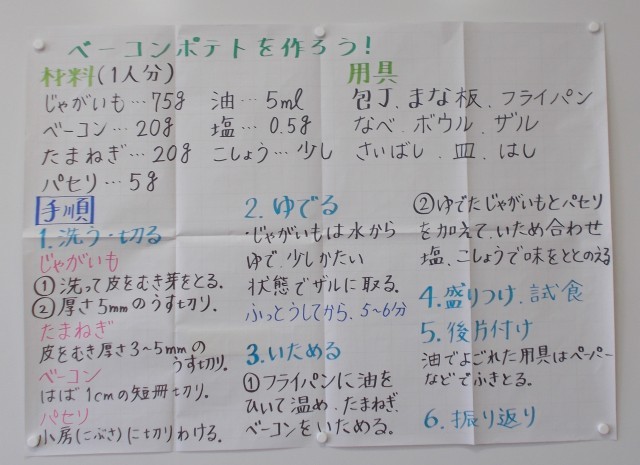 ベーコンポテトを作ろう!
材料(1人分)
じゃがいも…75g 油…5ml
ベーコン…20g 塩…0.5g
たまねぎ…20g こしょう…少し
パセリ…5g
用具
包丁、まな板、フライパン
なべ、ボウル、ザル
さいばし、皿、はし
手順
1.洗う・切る
じゃがいも
①洗って皮をむき芽をとる。
②厚さ5mmのうす切り。
たまねぎ
皮をむき厚さ3~5mmの
うす切り。
ベーコン
はば1cmの短冊切り。
パセリ
小房(こぶさ)に切りわける。
2.ゆでる
・じゃがいもは水から
ゆで、少しかたい
状態でザルに取る。
ふっとうしてから、5~6分
3.いためる
①フライパンに油を
ひいて温め、たまねぎ、
ベーコンをいためる。
②ゆでたじゃがいもとパセリ
を加えて、いため合わせ
塩、こしょうで味をととのえる
4.盛りつけ、試食
5.後片付け
油でよごれた用具はペーパー
などでふきとる。
6.振り返り